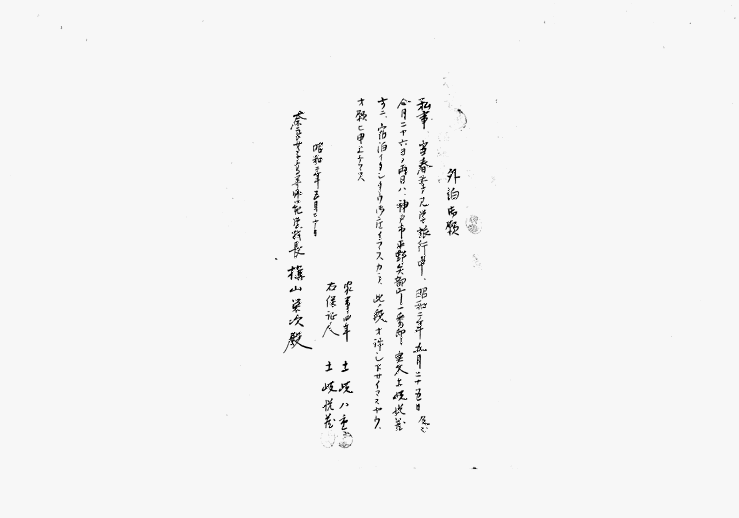 外泊御願
私事、当春季見学旅行中、昭和三年五月二十五日及ビ
今月二十六日ノ両日ハ、神戸市平野矢部町 土岐悦蔵
方ニ、宿泊イタシタウ御座イマスカラ、此ノ段オ許シ下サイマスヤウ、
オ願ヒ申上ゲマス
昭和三年五月二十日
家事四年 土岐八重
右保証人 土岐悦蔵
奈良女子高等師範学校長 槇山栄次殿